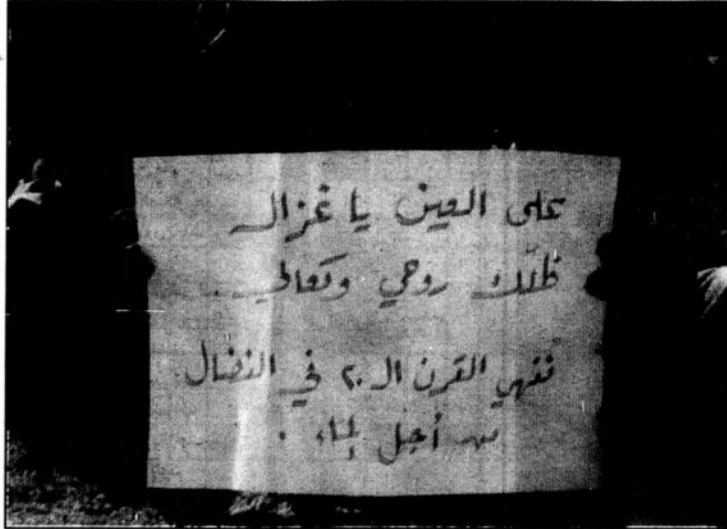 على العين يا غزال
ظلّك روحي وتعالي.
ننهي القرن الـ ٢٠ في النضال
من أجل الماء.